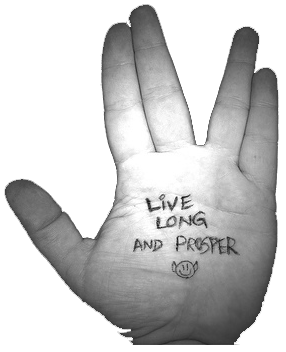 LiVE
LONG
AND PROSPER